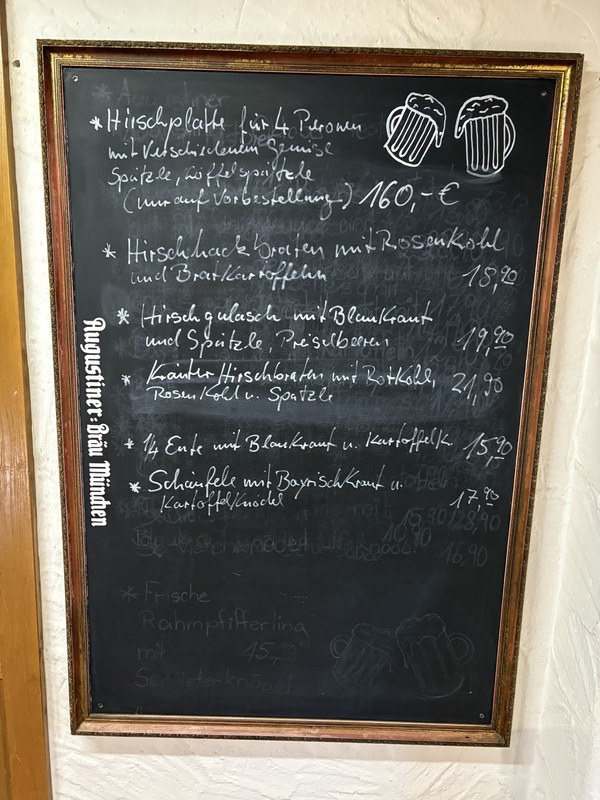 * Hirschplatte für 4 Personen
mit verschiedenem Gemüse
Spätzle, Löffelspätzle
(nur auf Vorbestellung) 160,-€
* Hirschhackbraten mit Rosenkohl
und Bratkartoffeln 18,90
* Hirschgulasch mit Blaukraut
und Spätzle, Preiselbeeren 19,90
* Kräuter Hirschbraten mit Rotkohl, 21,90
Rosenkohl u. Spätzle
* 1/4 Ente mit Blaukraut u. Kartoffelk. 15,90
* Schäufele mit Bayrischkraut u.
Kartoffelknödel 17,90
15,90 128,90
10,90
16,90
* Frische
Rahmpfifferling
mit 15,
Augustiner-Bräu München